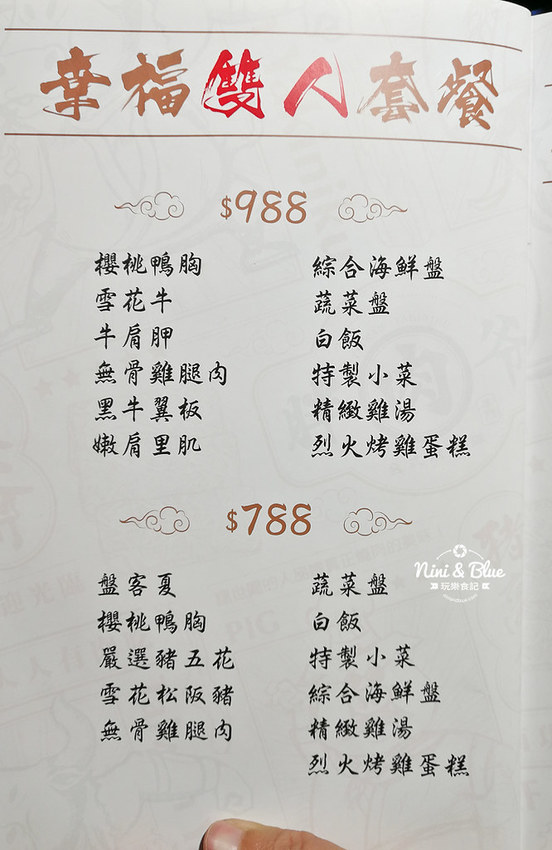 幸福雙人套餐
$988
櫻桃鴨胸
雪花牛
牛肩胛
無骨雞腿肉
黑牛翼板
嫩肩里肌
綜合海鮮盤
蔬菜盤
白飯
特製小菜
精緻雞湯
烈火烤雞蛋糕
$788
盤客夏
櫻桃鴨胸
嚴選豬五花
雪花松阪豬
無骨雞腿肉
蔬菜盤
白飯
特製小菜
綜合海鮮盤
精緻雞湯
烈火烤雞蛋糕
Nini & Blue
玩樂食記